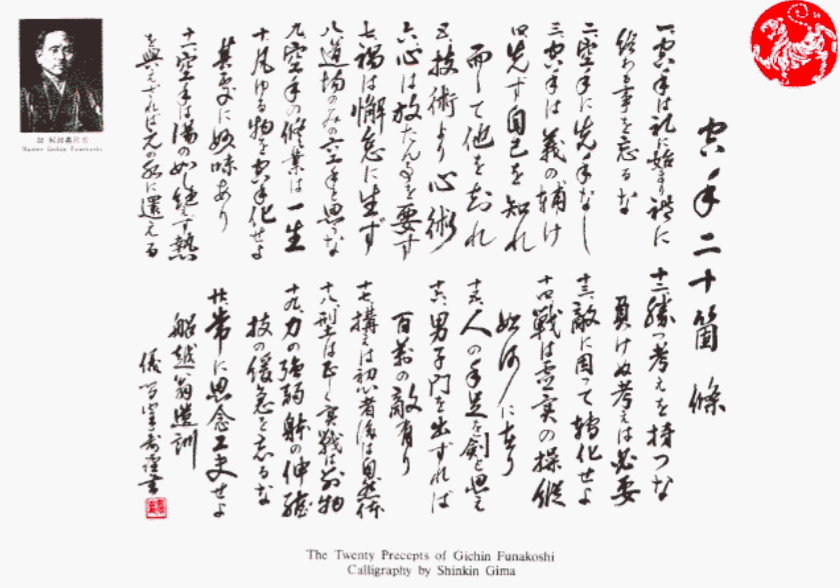 空手二十箇條
一、空手は礼に始まり禮に
終わる事を忘るな
二、空手に先手なし
三、空手は義の補け
四、先ず自己を知れ
而して他を知れ
五、技術より心術
六、心は放たん事を要す
七、禍は懈怠に生ず
八、道場のみの空手と思うな
九、空手の修業は一生
十、凡ゆる物を空手化せよ
其処に妙味あり
十一、空手は湯の如し絶えず熱
を與えざれば元の水に還える
十二、勝つ考えを持つな
負けぬ考えは必要
十三、敵に因って轉化せよ
十四、戦は虚実の操縦
如何に在り
十五、人の手足を剣と思え
十六、男子門を出ずれば
百萬の敵有り
十七、構えは初心者後は自然体
十八、型は正しく実戦は別物
十九、力の強弱体の伸縮
技の緩急を忘るな
廿、常に思念工夫せよ
船越翁遺訓
Master Gichin Funakoshi
The Twenty Precepts of Gichin Funakoshi
Calligraphy by Shinkin Gima